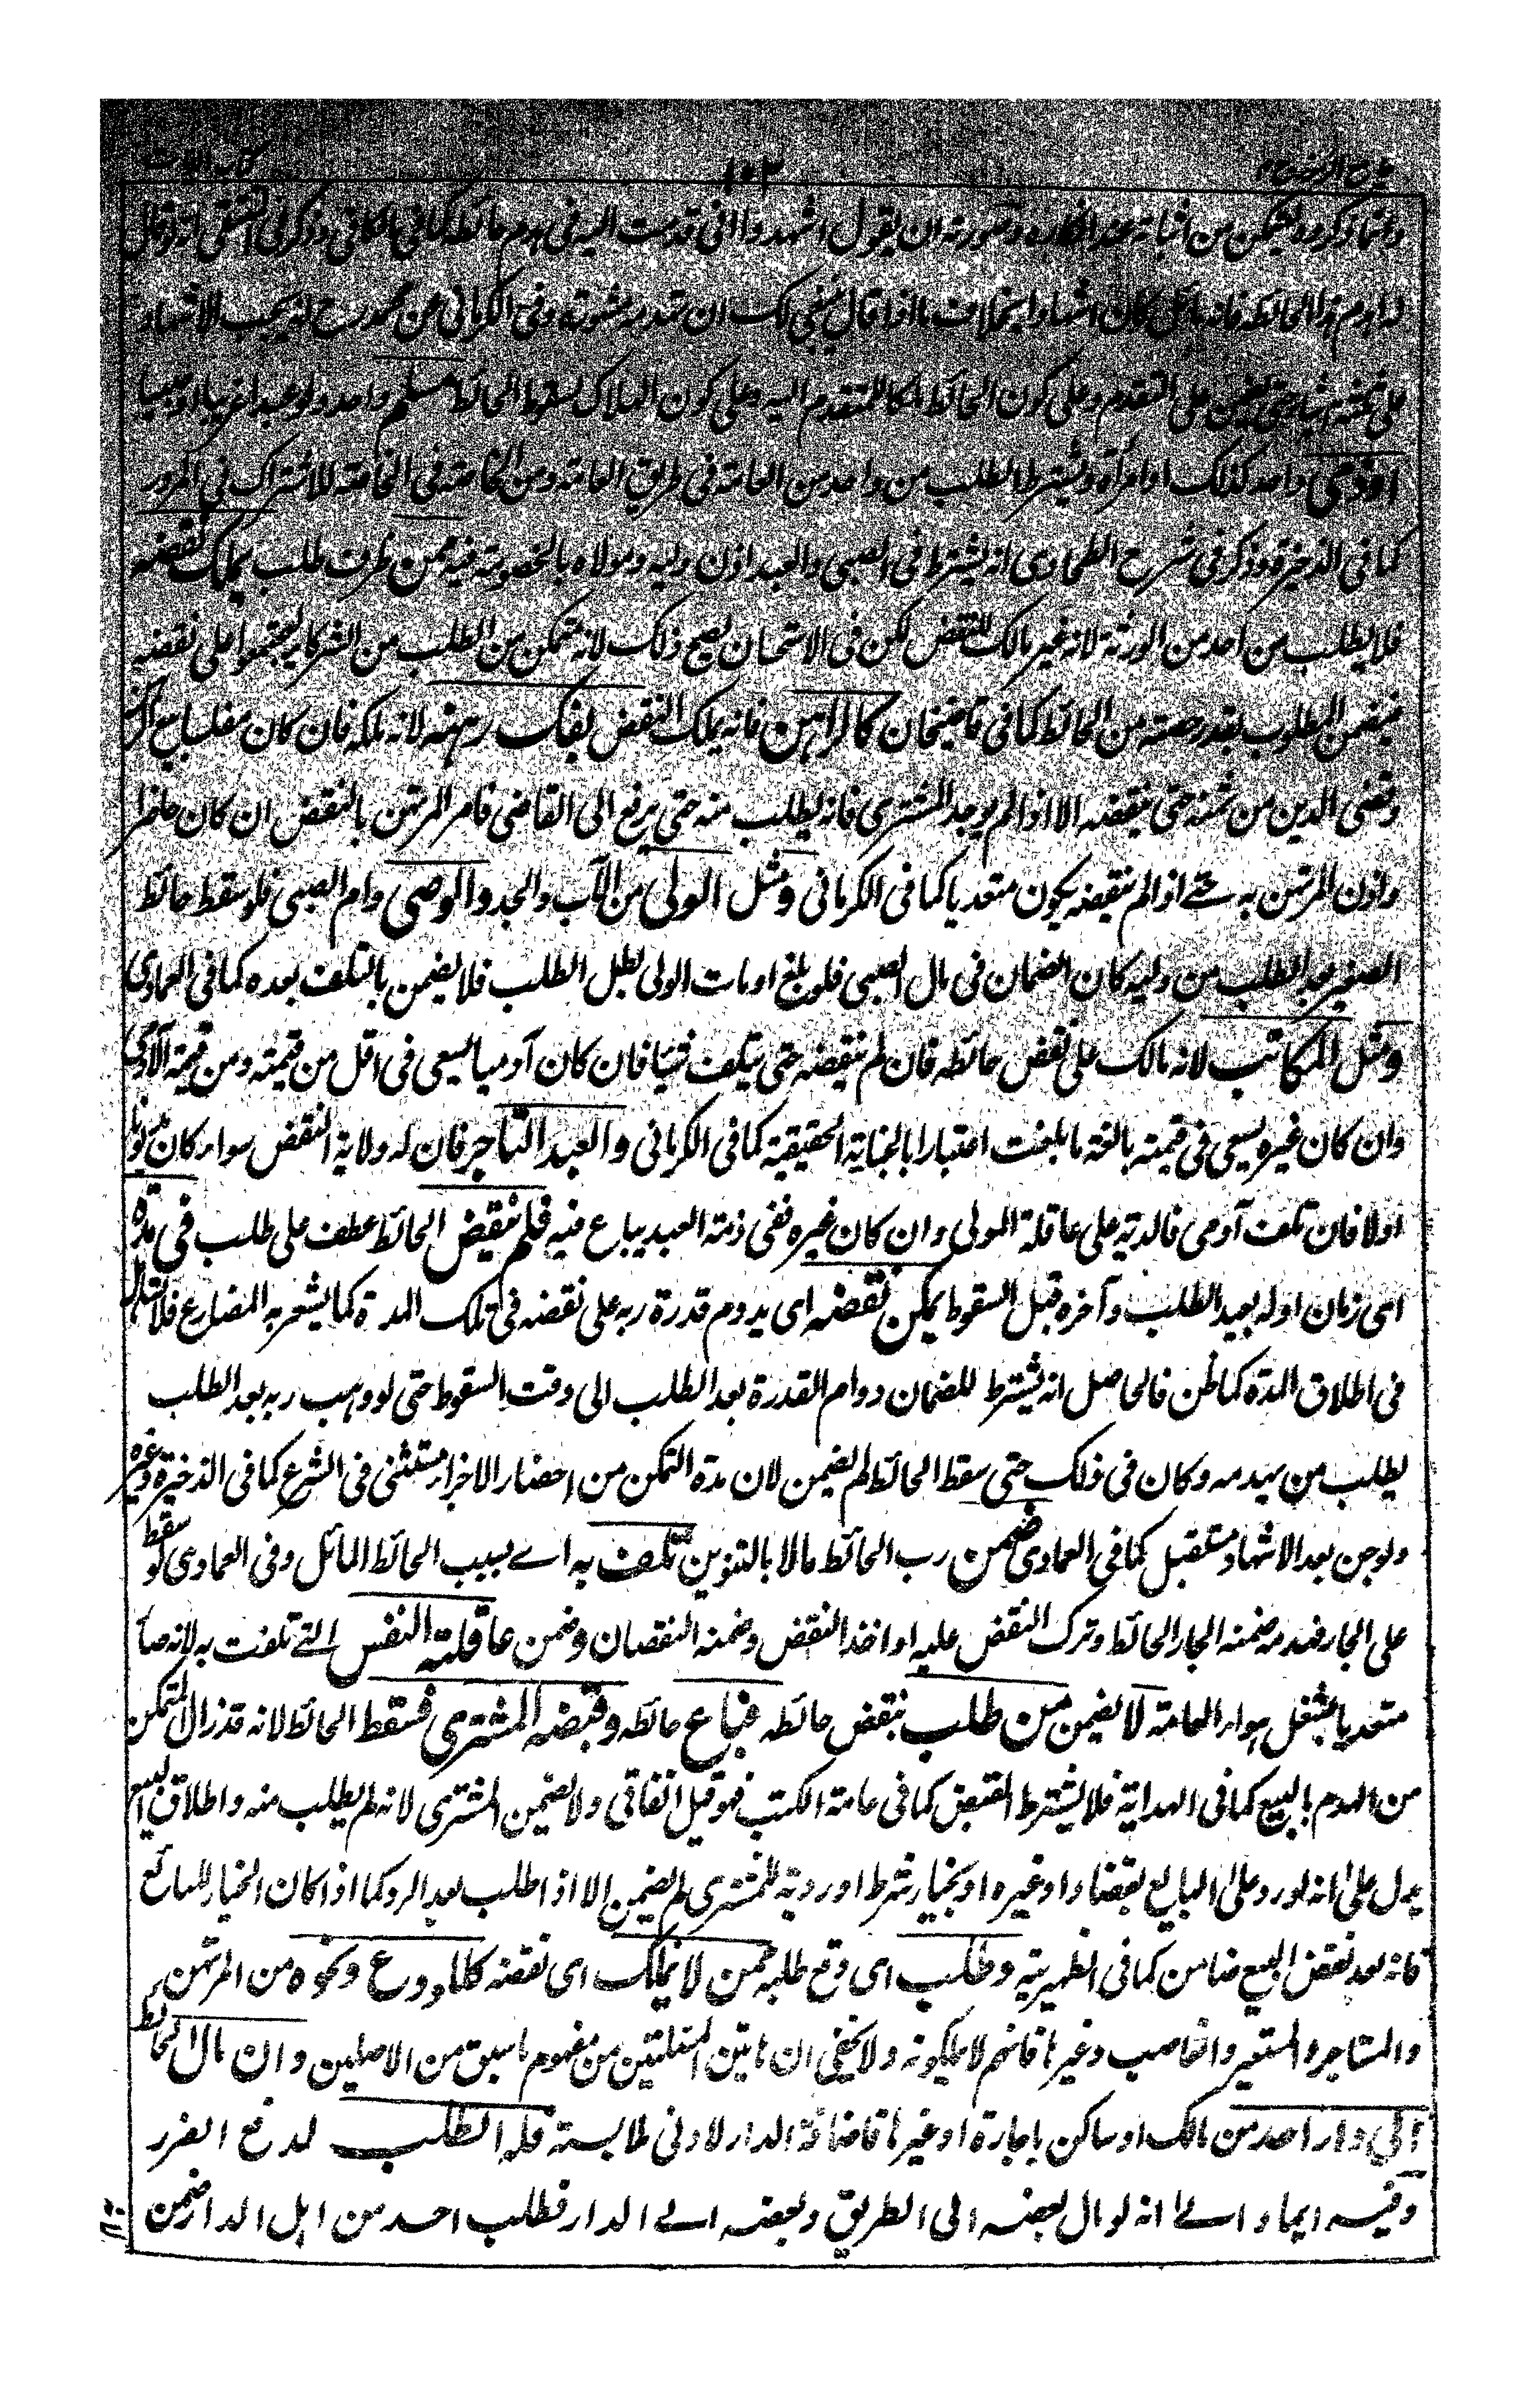 وانما ذكره ليتمكن من اثباته عند انكاره وصورته ان يقول اشهدوا انى قدمت اليه فى هدم حائطه كما فى الكافى وذكر فى المنتقى انه لو قال
له اهدم هذا الحائط فانه مائل كان اشهادا بخلاف ما اذا قال ينبغى لك ان تهدمه فمشورة وفى الكرمانى عن محمد انه يجب الاشهاد
على ثلثة اشياء حتى يضمن على التقدم وعلى كون الحائط ملكا للمتقدم اليه وعلى كون الهلاك لسقوط الحائط مسلم واحد ولو عبدا غريبا او صبيا
او ذمى واحد كذلك او امرأة ويشترط الطلب من واحد من العامة فى طريق العامة ومن الخاصة فى الخاصة للاشتراك فى المرور
كما فى الذخيرة وذكر فى شرح الطحاوى انه يشترط فى الصبى والعبد اذن وليه ومولاه بالخصومة فيه ممن ظرف طلب يملك نقضه
فلا يطلب من احد من الورثة لانه غير مالك للنقض لكن فى الاستحسان يصح ذلك لانه متمكن من الطلب من الشركاء ليجتمعوا على نقضه
فيضمن المطلوب بقدر حصته من الحائط كما فى قاضيخان كالراهن فانه يملك النقض بفك رهنه لانه ملكه فان كان مفلسا يبع الرهن
وقضى الدين من ثمنه حتى ينقضه الا اذا لم يوجد المشترى فانه يطلب منه حتى يرفع الى القاضى فامر المرتهن بالنقض ان كان حاضرا
واذن المرتهن به حتى اذا لم ينقضه يكون متعديا كما فى الكرمانى ومثل الولى من الأب والجد والوصى وام الصبى فلو سقط حائط
الصغير بعد الطلب من وليه كان الضمان فى مال الصبى فلو بلغ او مات الولى بطل الطلب فلا يضمن بالتلف بعده كما فى العمادى
ومثل المكاتب لانه مالك على نقض حائطه فان لم ينقضه حتى يتلف شيئا فان كان آدميا يسعى فى اقل من قيمته ومن قيمة الآدمى
وان كان غيره يسعى فى قيمته بالغة ما بلغت اعتبارا بالجناية الحقيقية كما فى الكرمانى والعبد التاجر فان له ولاية النقض سواء كان مديونا
اولا فان تلف آدمى فالدية على عاقلة المولى وان كان غيره ففى ذمة العبد يباع فيه فلم ينقض الحائط عطف على طلب فى مدة
اى زمان اوله بعيد الطلب وآخره قبل السقوط يمكن نقضه اى يدوم قدرة ربه على نقضه فى تلك المدة كما يشعر به المضارع فلا تساهل
فى اطلاق المدة كما ظن فالحاصل انه يشترط للضمان دوام القدرة بعد الطلب الى وقت السقوط حتى لو وهب ربه بعد الطلب
يطلب من يهدمه وكان فى ذلك حتى سقط الحائط لم يضمن لان مدة التمكن من احضار الاجراء مستثنى فى الشرع كما فى الذخيرة وغيره
ولو جن بعد الاشهاد مستقبل كما فى العمادى ضمن رب الحائط مالا بالتنوين تلف به اى بسبب الحائط المائل وفى العمادى لو سقط
على الجار فهدمه ضمنه الجار الحائط وترك النقض عليه او اخذ النقض وضمنه النقصان وضمن عاقلته النفس التى تلفت به لانه صار
متعديا بشغل هواء العامة لا يضمن من طلب بنقض حائطه فباع حائطه وقبضه المشترى فسقط الحائط لانه قد زال التمكن
من الهدم بالبيع كما فى الهداية فلا يشترط القبض كما فى عامة الكتب فهو قيل اتفاقى ولا يضمن المشترى لانه لم يطلب منه واطلاق البيع
يدل على انه لو رد على البايع بقضاء او غيره او بخيار شرط او روية للمشترى لم يضمن الا اذا طلب بعد الرد كما اذا كان الخيار للبائع
فانه بعد نقض البيع ضامن كما فى الظهيرية وطلب اى وقع طلبه ممن لا يملك اى نقضه كالمودع ونحوه من المرتهن
والمستاجر والمستعير والغاصب وغيرها فانهم لا يملكونه ولا يخفى ان هاتين المسئلتين من مفهوم ما سبق من الاصلين وان مال الحائط
الى دار احد من مالك او ساكن باجارة او غيرها فاضافة الدار لادنى ملابسة فله الطلب لدفع الضرر
وفيه ايماء الى انه لو مال بعضه الى الطريق وبعضه الى الدار فطلب احد من اهل الدار ضمن